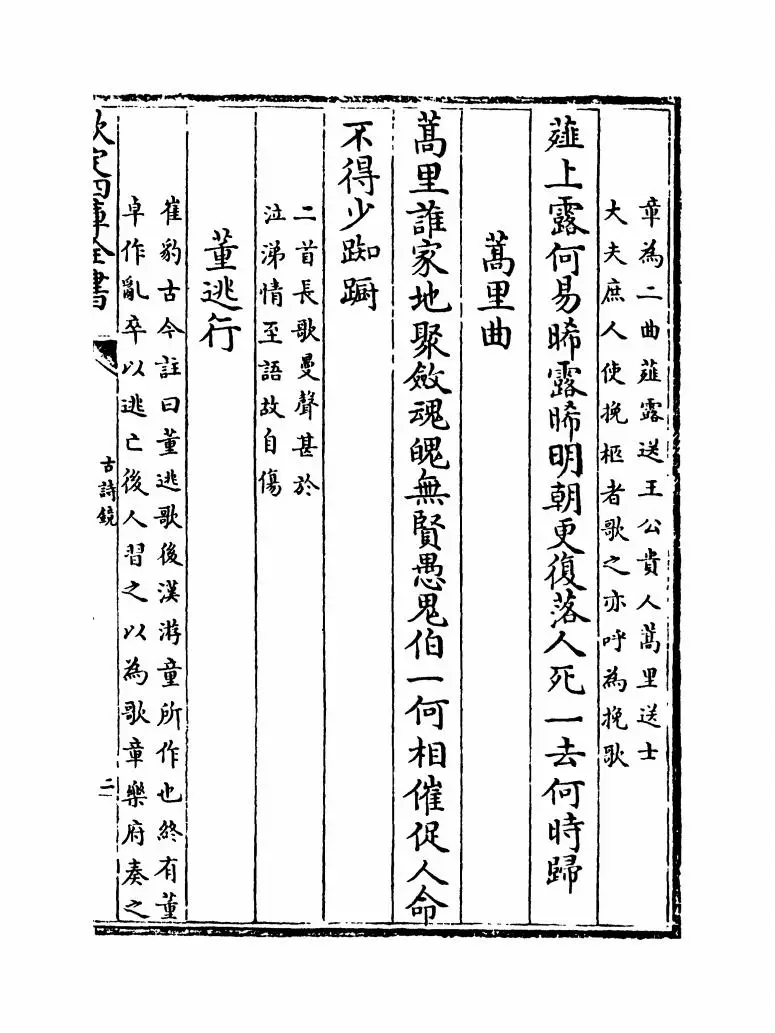 章為二曲薤露送王公貴人蒿里送士
大夫庶人使挽柩者歌之亦呼為挽歌
薤上露何易晞露晞明朝更復落人死一去何時歸
蒿里曲
蒿里誰家地聚斂魂魄無賢愚鬼伯一何相催促人命
不得少踟蹰
二首長歌曼聲甚於
泣涕情至語故自傷
董逃行
崔豹古今註曰董逃歌後漢游童所作也終有董
卓作亂卒以逃亡後人習之以為歌章樂府奏之
欽定四庫全書
古詩鏡
二